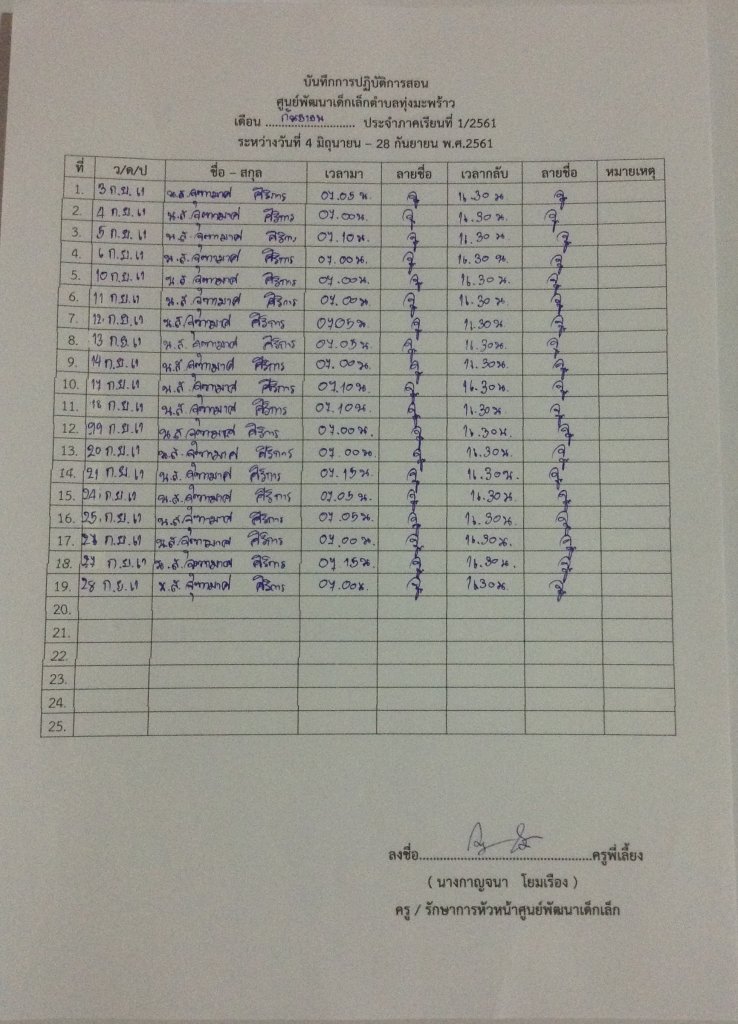 บันทึกการปฏิบัติการสอน
ศูนย์พัฒนาเด็กเล็กตำบลทุ่งมะพร้าว
เดือน กันยายน ประจำภาคเรียนที่ 1/2561
ระหว่างวันที่ 4 มิถุนายน – 28 กันยายน พ.ศ.2561
ที่ ว/ด/ป ชื่อ – สกุล เวลามา ลายชื่อ เวลากลับ ลายชื่อ หมายเหตุ
1. 3 ก.ย. 61 น.ส.จุฑามาศ ศิริการ 07.05 น. จุ 16.30 น จุ
2. 4 ก.ย. 61 น.ส.จุฑามาศ ศิริการ 07.00น. จุ 16.30 น. จุ
3. 5 ก.ย. 61 น.ส.จุฑามาศ ศิริการ 07.10น. จุ 16.30 น. จุ
4. 6 ก.ย. 61 น.ส.จุฑามาศ ศิริการ 07.00น. จุ 16.30 น. จุ
5. 10 ก.ย. 61 น.ส.จุฑามาศ ศิริการ 07.00น. จุ 16.30น. จุ
6. 11 ก.ย. 61 น.ส.จุฑามาศ ศิริการ 07.00น. จุ 16.30น. จุ
7. 12 ก.ย. 61 น.ส.จุฑามาศ ศิริการ 0705น. จุ 16.30น จุ
8. 13 ก.ย. 61 น.ส.จุฑามาศ ศิริการ 07.05น. จุ 16.30น. จุ
9. 14 ก.ย. 61 น.ส.จุฑามาศ ศิริการ 07.00น. จุ 16.30น. จุ
10. 17 ก.ย. 61 น.ส.จุฑามาศ ศิริการ 07.10น. จุ 16.30น. จุ
11. 18 ก.ย. 61 น.ส.จุฑามาศ ศิริการ 07.10น. จุ 16.30น. จุ
12. 19 ก.ย. 61 น.ส.จุฑามาศ ศิริการ 07.00น. จุ 16.30น. จุ
13. 20 ก.ย. 61 น.ส.จุฑามาศ ศิริการ 07.00น. จุ 16.30น. จุ
14. 21 ก.ย. 61 น.ส.จุฑามาศ ศิริการ 07.15น. จุ 16.30น. จุ
15. 24 ก.ย. 61 น.ส.จุฑามาศ ศิริการ 07.05น. จุ 16.30น. จุ
16. 25 ก.ย. 61 น.ส.จุฑามาศ ศิริการ 07.05น. จุ 16.30น. จุ
17. 26 ก.ย. 61 น.ส.จุฑามาศ ศิริการ 07.00น. จุ 16.30น. จุ
18. 27 ก.ย. 61 น.ส.จุฑามาศ ศิริการ 07.15น. จุ 16.30น. จุ
19. 28 ก.ย. 61 น.ส.จุฑามาศ ศิริการ 07.00น. จุ 1630น. จุ
20.
21.
22.
23.
24.
25.
ลงชื่อ................................................ครูพี่เลี้ยง
( นางกาญจนา โยมเรือง )
ครู / รักษาการหัวหน้าศูนย์พัฒนาเด็กเล็ก